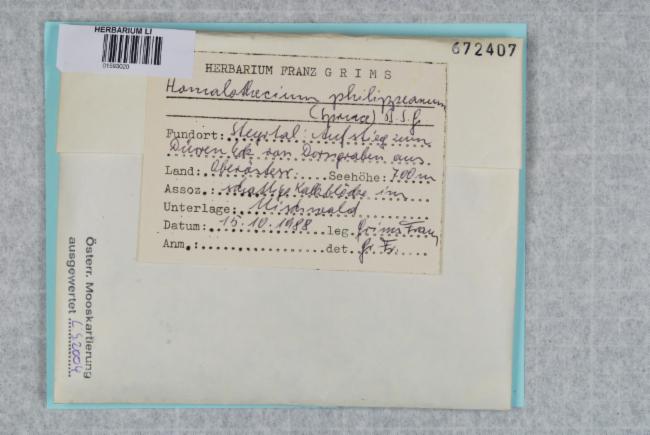 HERBARIUM LI
01593020
672407
HERBARIUM FRANZ GRIMS
Homalothecium philippeanum
(Spruce) B.S.G.
Fundort: Steyrtal: Aufstieg zum
Dürren Eck von Dorngraben aus.
Land: Oberösterr. Seehöhe: 700m
Assoz.: schattige Kalkblöcke im
Unterlage: Mischwald
Datum: 15.10.1988 leg. Grims Franz
Anm.: det. Gr. Fr.
Österr. Mooskartierung
ausgewertet